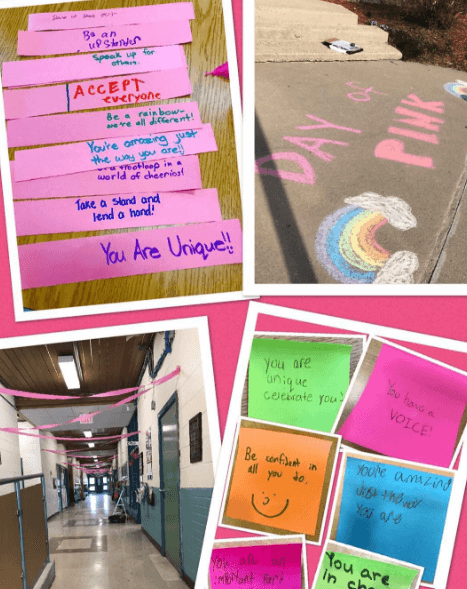 Be an
upstander
Speak up for
others.
ACCEPT
everyone
Be a rainbow-
we're all different!
You're amazing just
the way you are!
in a
world of cheerios!
Take a stand and
lend a hand!
You Are Unique!!
DAY of
PINK
You are
unique
celebrate you!
You have a
VOICE!
Be confident in
all you do.
You're amazing
just the way
you are
You are an
important part
You are
in